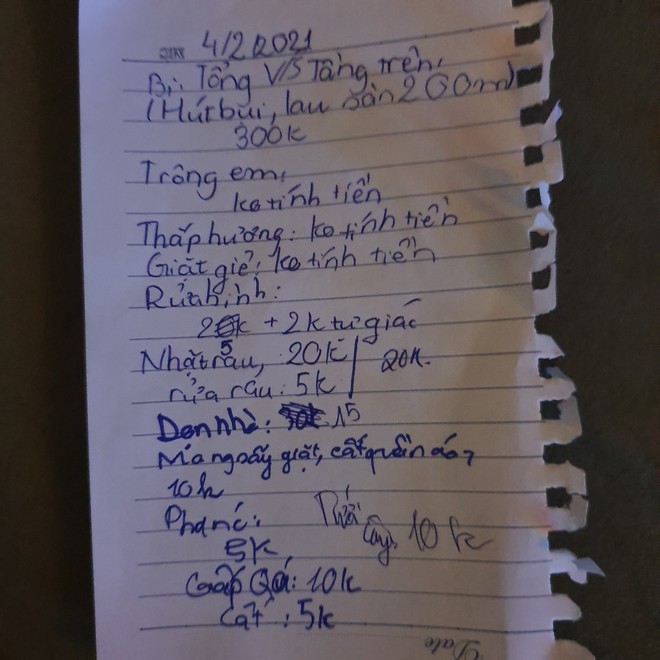 4/2/2021
Bi: Tổng V/S Tầng trên,
(Hút bụi, lau sàn 200m)
300k
Trông em:
ko tính tiền
Thắp hương: ko tính tiền
Giặt giẻ: ko tính tiền
Rửa bình:
25k + 2k tự giác
Nhặt rau, 20k / 20k.
rửa rau: 5k
Dọn nhà: 15
Mang máy giặt, cất quần áo,
10k
Pha nc:
5k
Tưới cây: 10k
Gấp QA: 10k
Cất: 5k
Date